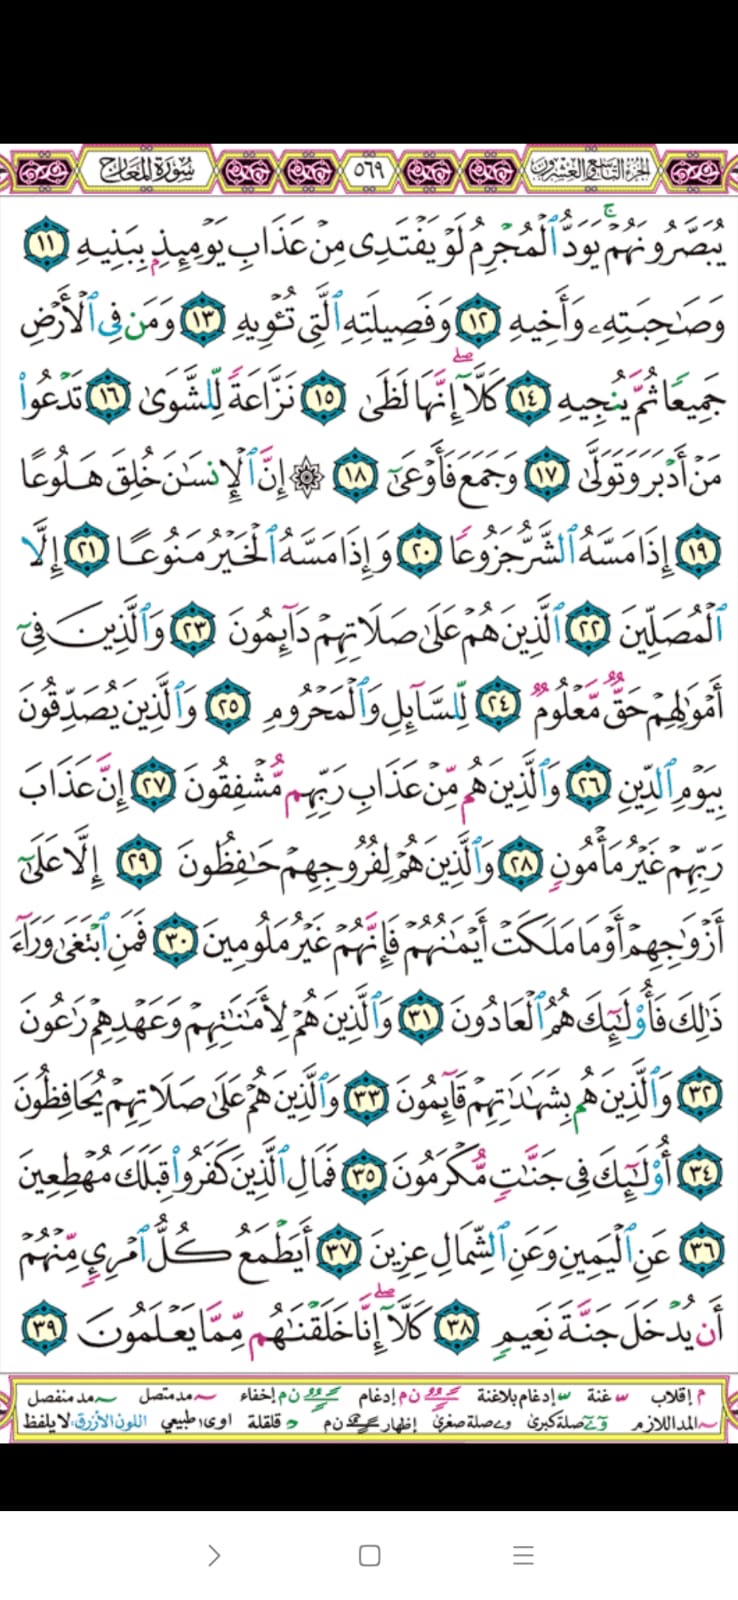 الجزء التاسع والعشرون ٥٦٩ سورة المعارج
يُبَصَّرُونَهُمْ ۚ يَوَدُّ ٱلْمُجْرِمُ لَوْ يَفْتَدِى مِنْ عَذَابِ يَوْمِئِذِۭ بِبَنِيهِ ١١
وَصَـٰحِبَتِهِۦ وَأَخِيهِ ١٢ وَفَصِيلَتِهِ ٱلَّتِى تُـْٔوِيهِ ١٣ وَمَن فِى ٱلْأَرْضِ
جَمِيعًا ثُمَّ يُنجِيهِ ١٤ كَلَّآ ۖ إِنَّهَا لَظَىٰ ١٥ نَزَّاعَةً لِّلشَّوَىٰ ١٦ تَدْعُوا۟
مَنْ أَدْبَرَ وَتَوَلَّىٰ ١٧ وَجَمَعَ فَأَوْعَىٰٓ ١٨ ۞ إِنَّ ٱلْإِنسَـٰنَ خُلِقَ هَلُوعًا
١٩ إِذَا مَسَّهُ ٱلشَّرُّ جَزُوعًا ٢٠ وَإِذَا مَسَّهُ ٱلْخَيْرُ مَنُوعًا ٢١ إِلَّا
ٱلْمُصَلِّينَ ٢٢ ٱلَّذِينَ هُمْ عَلَىٰ صَلَاتِهِمْ دَآئِمُونَ ٢٣ وَٱلَّذِينَ فِىٓ
أَمْوَٰلِهِمْ حَقٌّ مَّعْلُومٌ ٢٤ لِّلسَّآئِلِ وَٱلْمَحْرُومِ ٢٥ وَٱلَّذِينَ يُصَدِّقُونَ
بِيَوْمِ ٱلدِّينِ ٢٦ وَٱلَّذِينَ هُم مِّنْ عَذَابِ رَبِّهِم مُّشْفِقُونَ ٢٧ إِنَّ عَذَابَ
رَبِّهِمْ غَيْرُ مَأْمُونٍ ٢٨ وَٱلَّذِينَ هُمْ لِفُرُوجِهِمْ حَـٰفِظُونَ ٢٩ إِلَّا عَلَىٰٓ
أَزْوَٰجِهِمْ أَوْ مَا مَلَكَتْ أَيْمَـٰنُهُمْ فَإِنَّهُمْ غَيْرُ مَلُومِينَ ٣٠ فَمَنِ ٱبْتَغَىٰ وَرَآءَ
ذَٰلِكَ فَأُو۟لَـٰٓئِكَ هُمُ ٱلْعَادُونَ ٣١ وَٱلَّذِينَ هُمْ لِأَمَـٰنَـٰتِهِمْ وَعَهْدِهِمْ رَٰعُونَ
٣٢ وَٱلَّذِينَ هُم بِشَهَـٰدَٰتِهِمْ قَآئِمُونَ ٣٣ وَٱلَّذِينَ هُمْ عَلَىٰ صَلَاتِهِمْ يُحَافِظُونَ
٣٤ أُو۟لَـٰٓئِكَ فِى جَنَّـٰتٍ مُّكْرَمُونَ ٣٥ فَمَالِ ٱلَّذِينَ كَفَرُوا۟ قِبَلَكَ مُهْطِعِينَ
٣٦ عَنِ ٱلْيَمِينِ وَعَنِ ٱلشِّمَالِ عِزِينَ ٣٧ أَيَطْمَعُ كُلُّ ٱمْرِئٍ مِّنْهُمْ
أَن يُدْخَلَ جَنَّةَ نَعِيمٍ ٣٨ كَلَّآ ۖ إِنَّا خَلَقْنَـٰهُم مِّمَّا يَعْلَمُونَ ٣٩
م إقلاب غنة إدغام بلاغنة ن م إدغام ن م إخفاء مد متصل مد منفصل
المد اللازم صلة كبرى صلة صغرى إظهار ن م قلقلة اوى طبيعي اللون الأزرق لا يلفظ